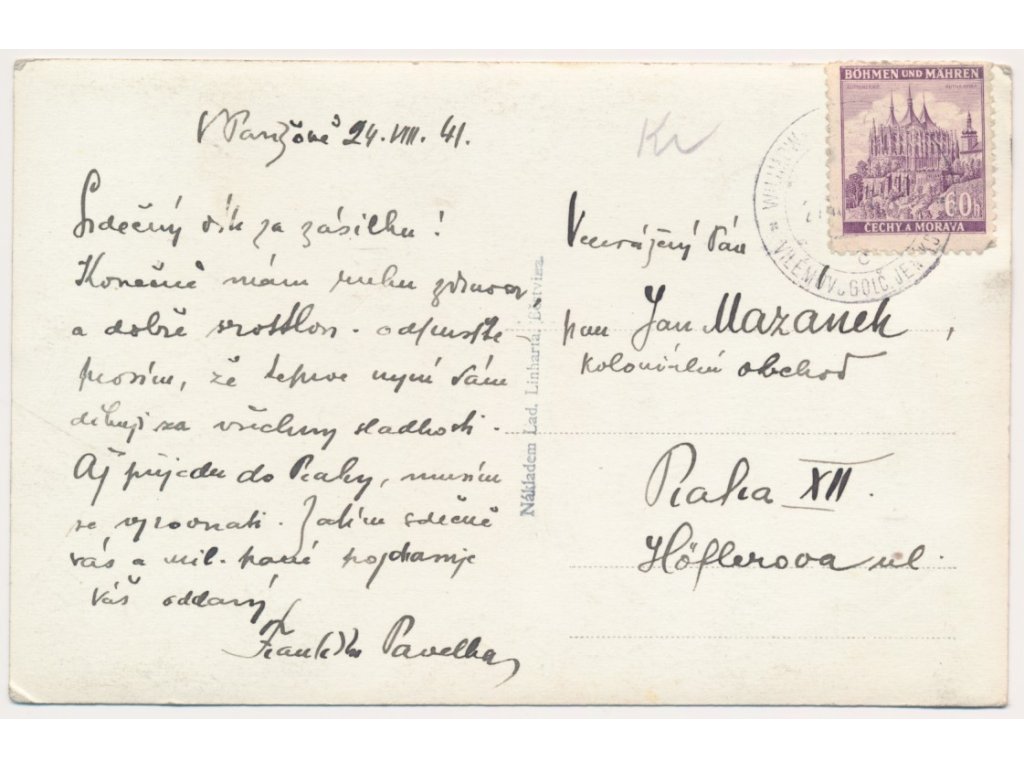 V Pařížově 24. VIII. 41.
Srdečný dík za zásilku!
Konečně mám ruku zdravou
a dobře srostlou. odpusťte
prosím, že teprve nyní Vám
děkuji za všechny sladkosti.
Až přijedu do Prahy, musím
se vyrovnati. Zatím srdečně
vás a mil. paní pozdravuje
Váš oddaný
František Pavelka
Nákladem Lad. Linharta,
Kr
BÖHMEN UND MÄHREN
60h
ČECHY A MORAVA
VILÉMOV u GOLČ. JENÍK
Velevážený Pán
pan Jan Mazanek,
koloniální obchod
Praha XII.
Höflerova ul.